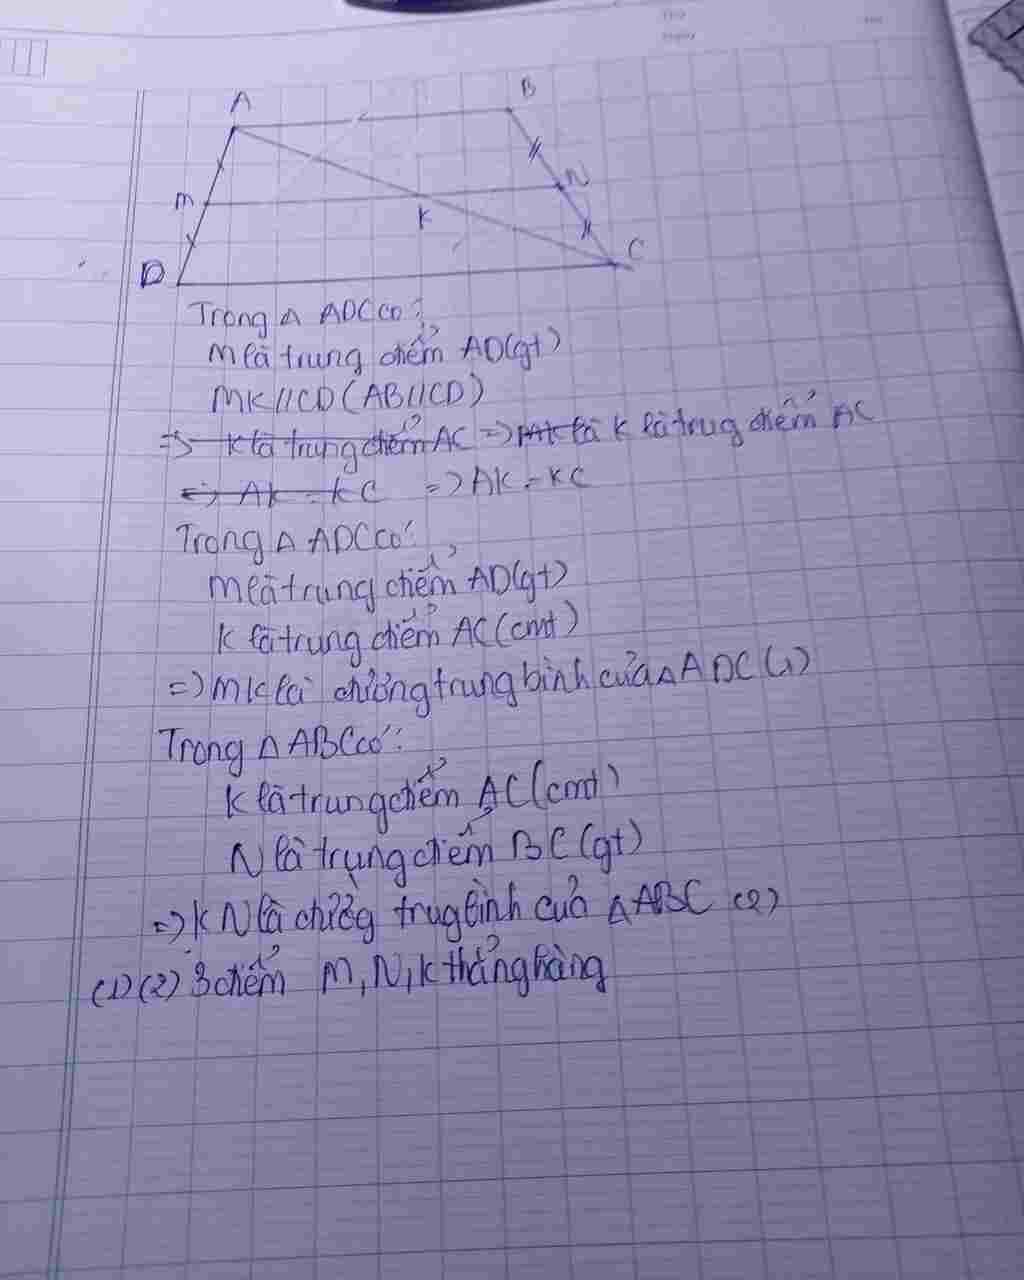 A
B
M
N
K
D
C
Trong Δ ADC có:
M là trung điểm AD(gt)
MK//CD (AB//CD)
=> K là trung điểm AC => MK là K là trug điểm AC
=> AK = KC => AK = KC
Trong Δ ADC có:
M là trung điểm AD(gt)
K là trung điểm AC (cmt)
=> MK là đường trung bình của Δ ADC (1)
Trong Δ ABC có:
K là trung điểm AC (cmt)
N là trung điểm BC (gt)
=> KN là đường trug bình của Δ ABC (2)
(1)(2) 3 điểm M, N, K thẳng hàng